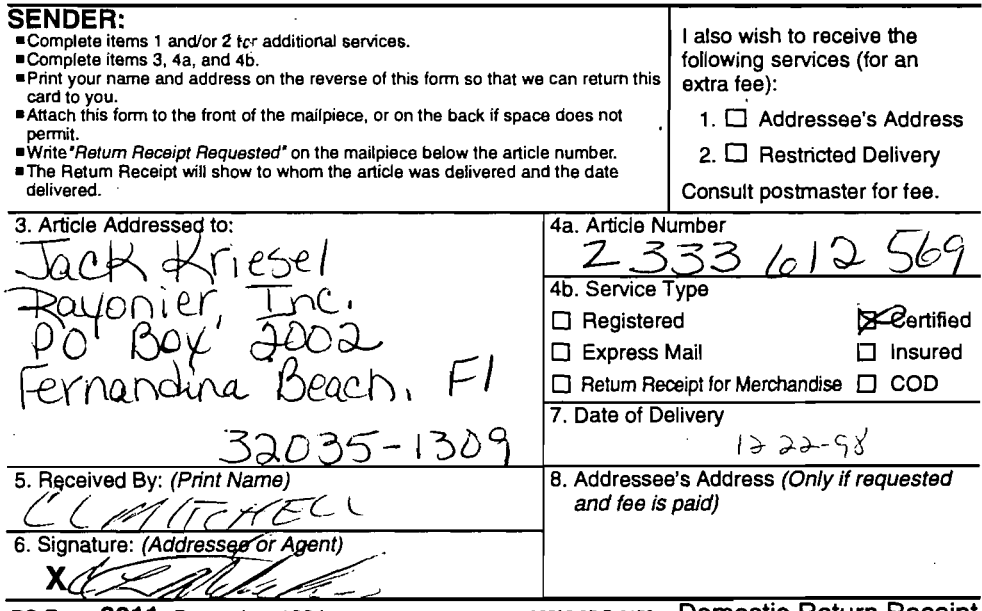 SENDER:
■Complete items 1 and/or 2 for additional services.
■Complete items 3, 4a, and 4b.
■Print your name and address on the reverse of this form so that we can return this
card to you.
■Attach this form to the front of the mailpiece, or on the back if space does not
permit.
■Write "Return Receipt Requested" on the mailpiece below the article number.
■The Return Receipt will show to whom the article was delivered and the date
delivered.
I also wish to receive the
following services (for an
extra fee):
1. ☐ Addressee's Address
2. ☐ Restricted Delivery
Consult postmaster for fee.
3. Article Addressed to:
Jack Kriesel
Rayonier, Inc.
PO Box 2002
Fernandina Beach, Fl
32035-1309
4a. Article Number
Z 333 612 569
4b. Service Type
☐ Registered ☒ Certified
☐ Express Mail ☐ Insured
☐ Return Receipt for Merchandise ☐ COD
7. Date of Delivery
12-22-98
5. Received By: (Print Name)
CL MITCHELL
8. Addressee's Address (Only if requested
and fee is paid)
6. Signature: (Addressee or Agent)
X
3811
Domestic Return Receipt